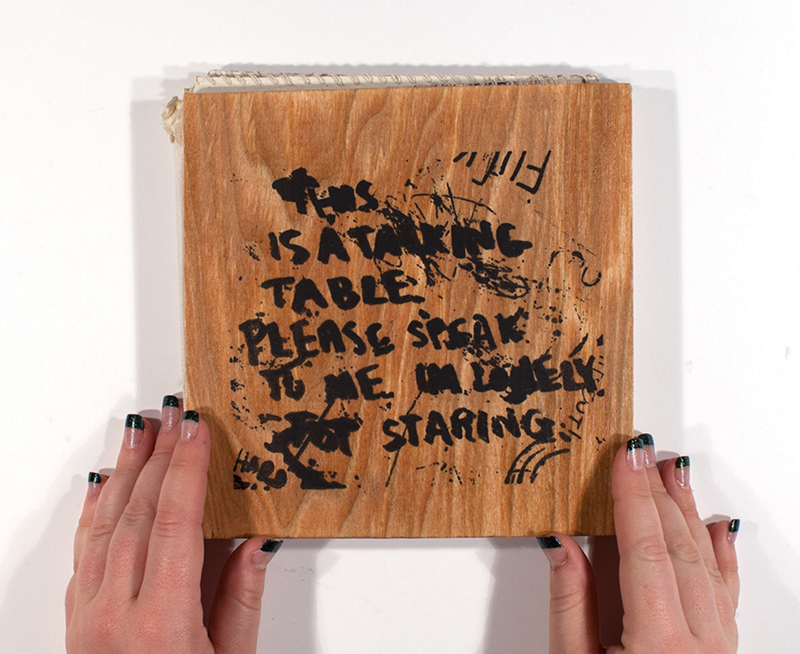 THIS
IS A TALKING
TABLE
PLEASE SPEAK
TO ME IM LONELY
STARING
HARD